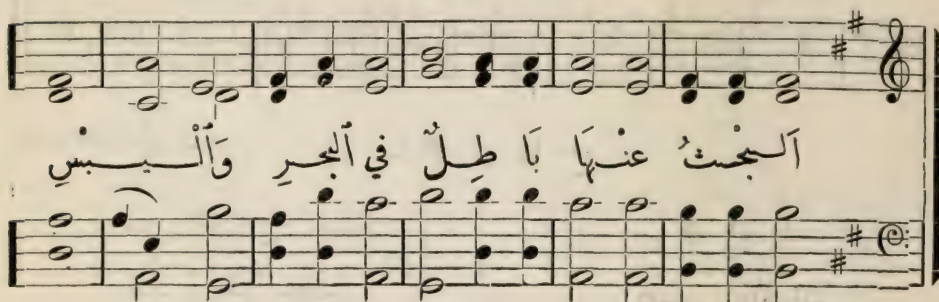 اَلْبَحْثُ عَنْهَا بَا طِلٌ في ٱلْبَحرِ وَٱلْيَبْسِ